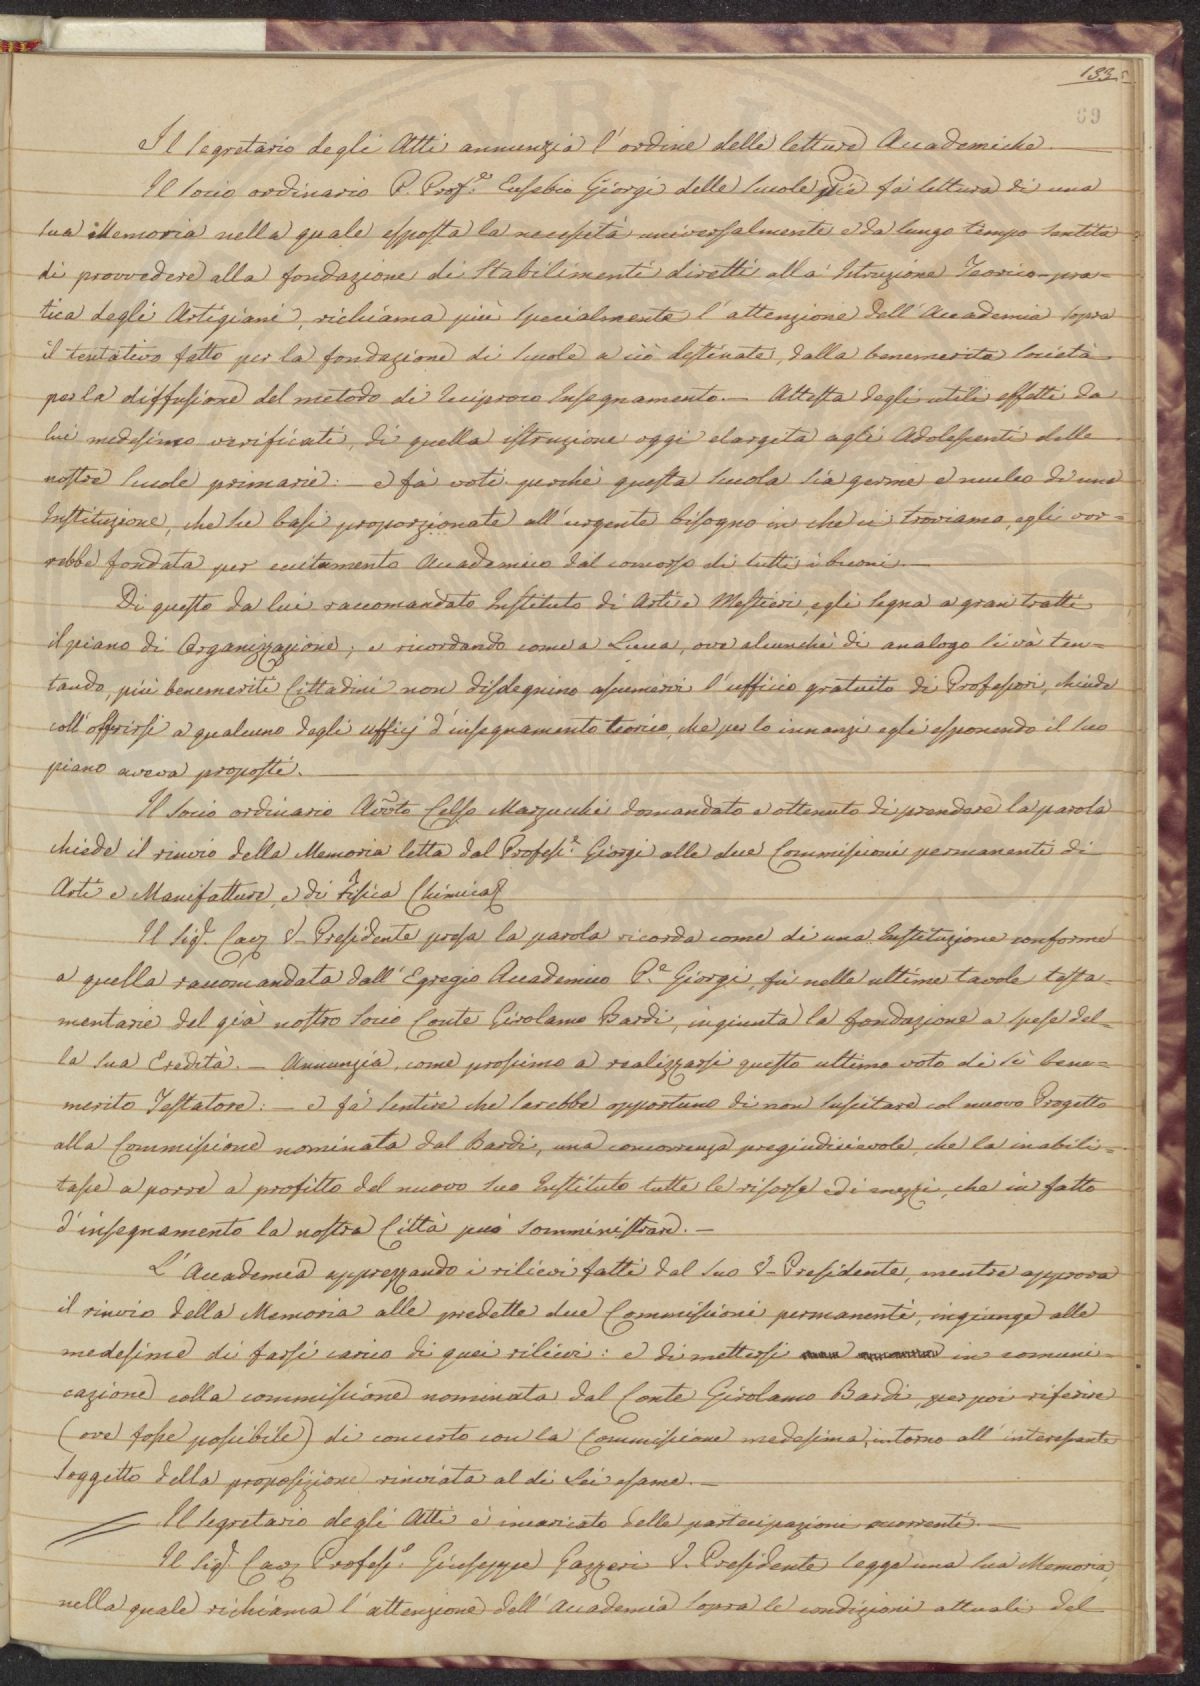 133.
69
Il Segretario degli Atti annunzia l'ordine delle letture Accademiche.
Il Socio ordinario P. Prof.e Eusebio Giorgi delle Scuole Pie fà lettura di una
sua Memoria nella quale esposta la necessità universalmente e da lungo tempo sentita
di provvedere alla fondazione di Stabilimenti diretti alla Istruzione Teorico-pra-
tica degli Artigiani, richiama più specialmente l'attenzione dell'Accademia sopra
il tentativo fatto per la fondazione di Scuole a ciò destinate, dalla benemerita Società
per la diffusione del metodo di reciproco Insegnamento. — Attesta degli utili effetti da
lui medesimo verificati, di quella istruzione oggi elargita agli Adolescenti delle
nostre Scuole primarie: — e fà voti perchè questa Scuola sia germe e nucleo di una
Instituzione, che su basi proporzionate all'urgente bisogno in che ci troviamo, egli vor-
rebbe fondata per eccitamento Accademico dal concorso di tutti i buoni. —
Di questo da lui raccomandato Instituto di Arti e Mestieri, egli segna a gran tratti
il piano di Organizzazione; e ricordando come a Lucca, ove alcunchè di analogo si và ten-
tando, più benemeriti Cittadini non disdegnino assumervi l'ufficio gratuito di Professori, chiude
coll'offrirsi a qualcuno degli ufficj d'insegnamento teorico, che per lo innanzi egli esponendo il suo
piano aveva proposti.
Il Socio ordinario Avvto Celso Marzucchi domandato e ottenuto di prendere la parola
chiede il rinvio della Memoria letta dal Profess.e Giorgi alle due Commissioni permanenti di
Arti e Manifatture, e di Fisica Chimica
Il Sig.r Cav. V-Presidente presa la parola ricorda come di una Instituzione conforme
a quella raccomandata dall'Egregio Accademico P.e Giorgi, fù nelle ultime tavole testa-
mentarie del già nostro Socio Conte Girolamo Bardi, ingiunta la fondazione a spese del-
la sua Eredità. — Annunzia, come prossimo a realizzarsi questo ultimo voto di sì bene-
merito Testatore: — e fà sentire che sarebbe opportuno di non suscitare col nuovo Progetto
alla Commissione nominata dal Bardi, una concorrenza pregiudicievole, che la inabili-
tasse a porre a profitto del nuovo suo Instituto tutte le risorse ed i mezzi, che in fatto
d'insegnamento la nostra Città può somministrare. —
L'Accademia apprezzando i rilievi fatti dal suo V-Presidente, mentre approva
il rinvio della Memoria alle predette due Commissioni permanenti, ingiunge alle
medesime di farsi carico di quei rilievi: e di mettersi in comuni-
cazione colla commissione nominata dal Conte Girolamo Bardi, per poi riferire
(ove fosse possibile) di concerto con la Commissione medesima, intorno all'interessante
soggetto della proposizione rinviata al di Lei esame. —
Il Segretario degli Atti è incaricato delle partecipazioni occorrenti. —
Il Sig.r Cav. Profess.e Giuseppe Gazzeri V. Presidente legge una sua Memoria,
nella quale richiama l'attenzione dell'Accademia sopra le condizioni attuali del